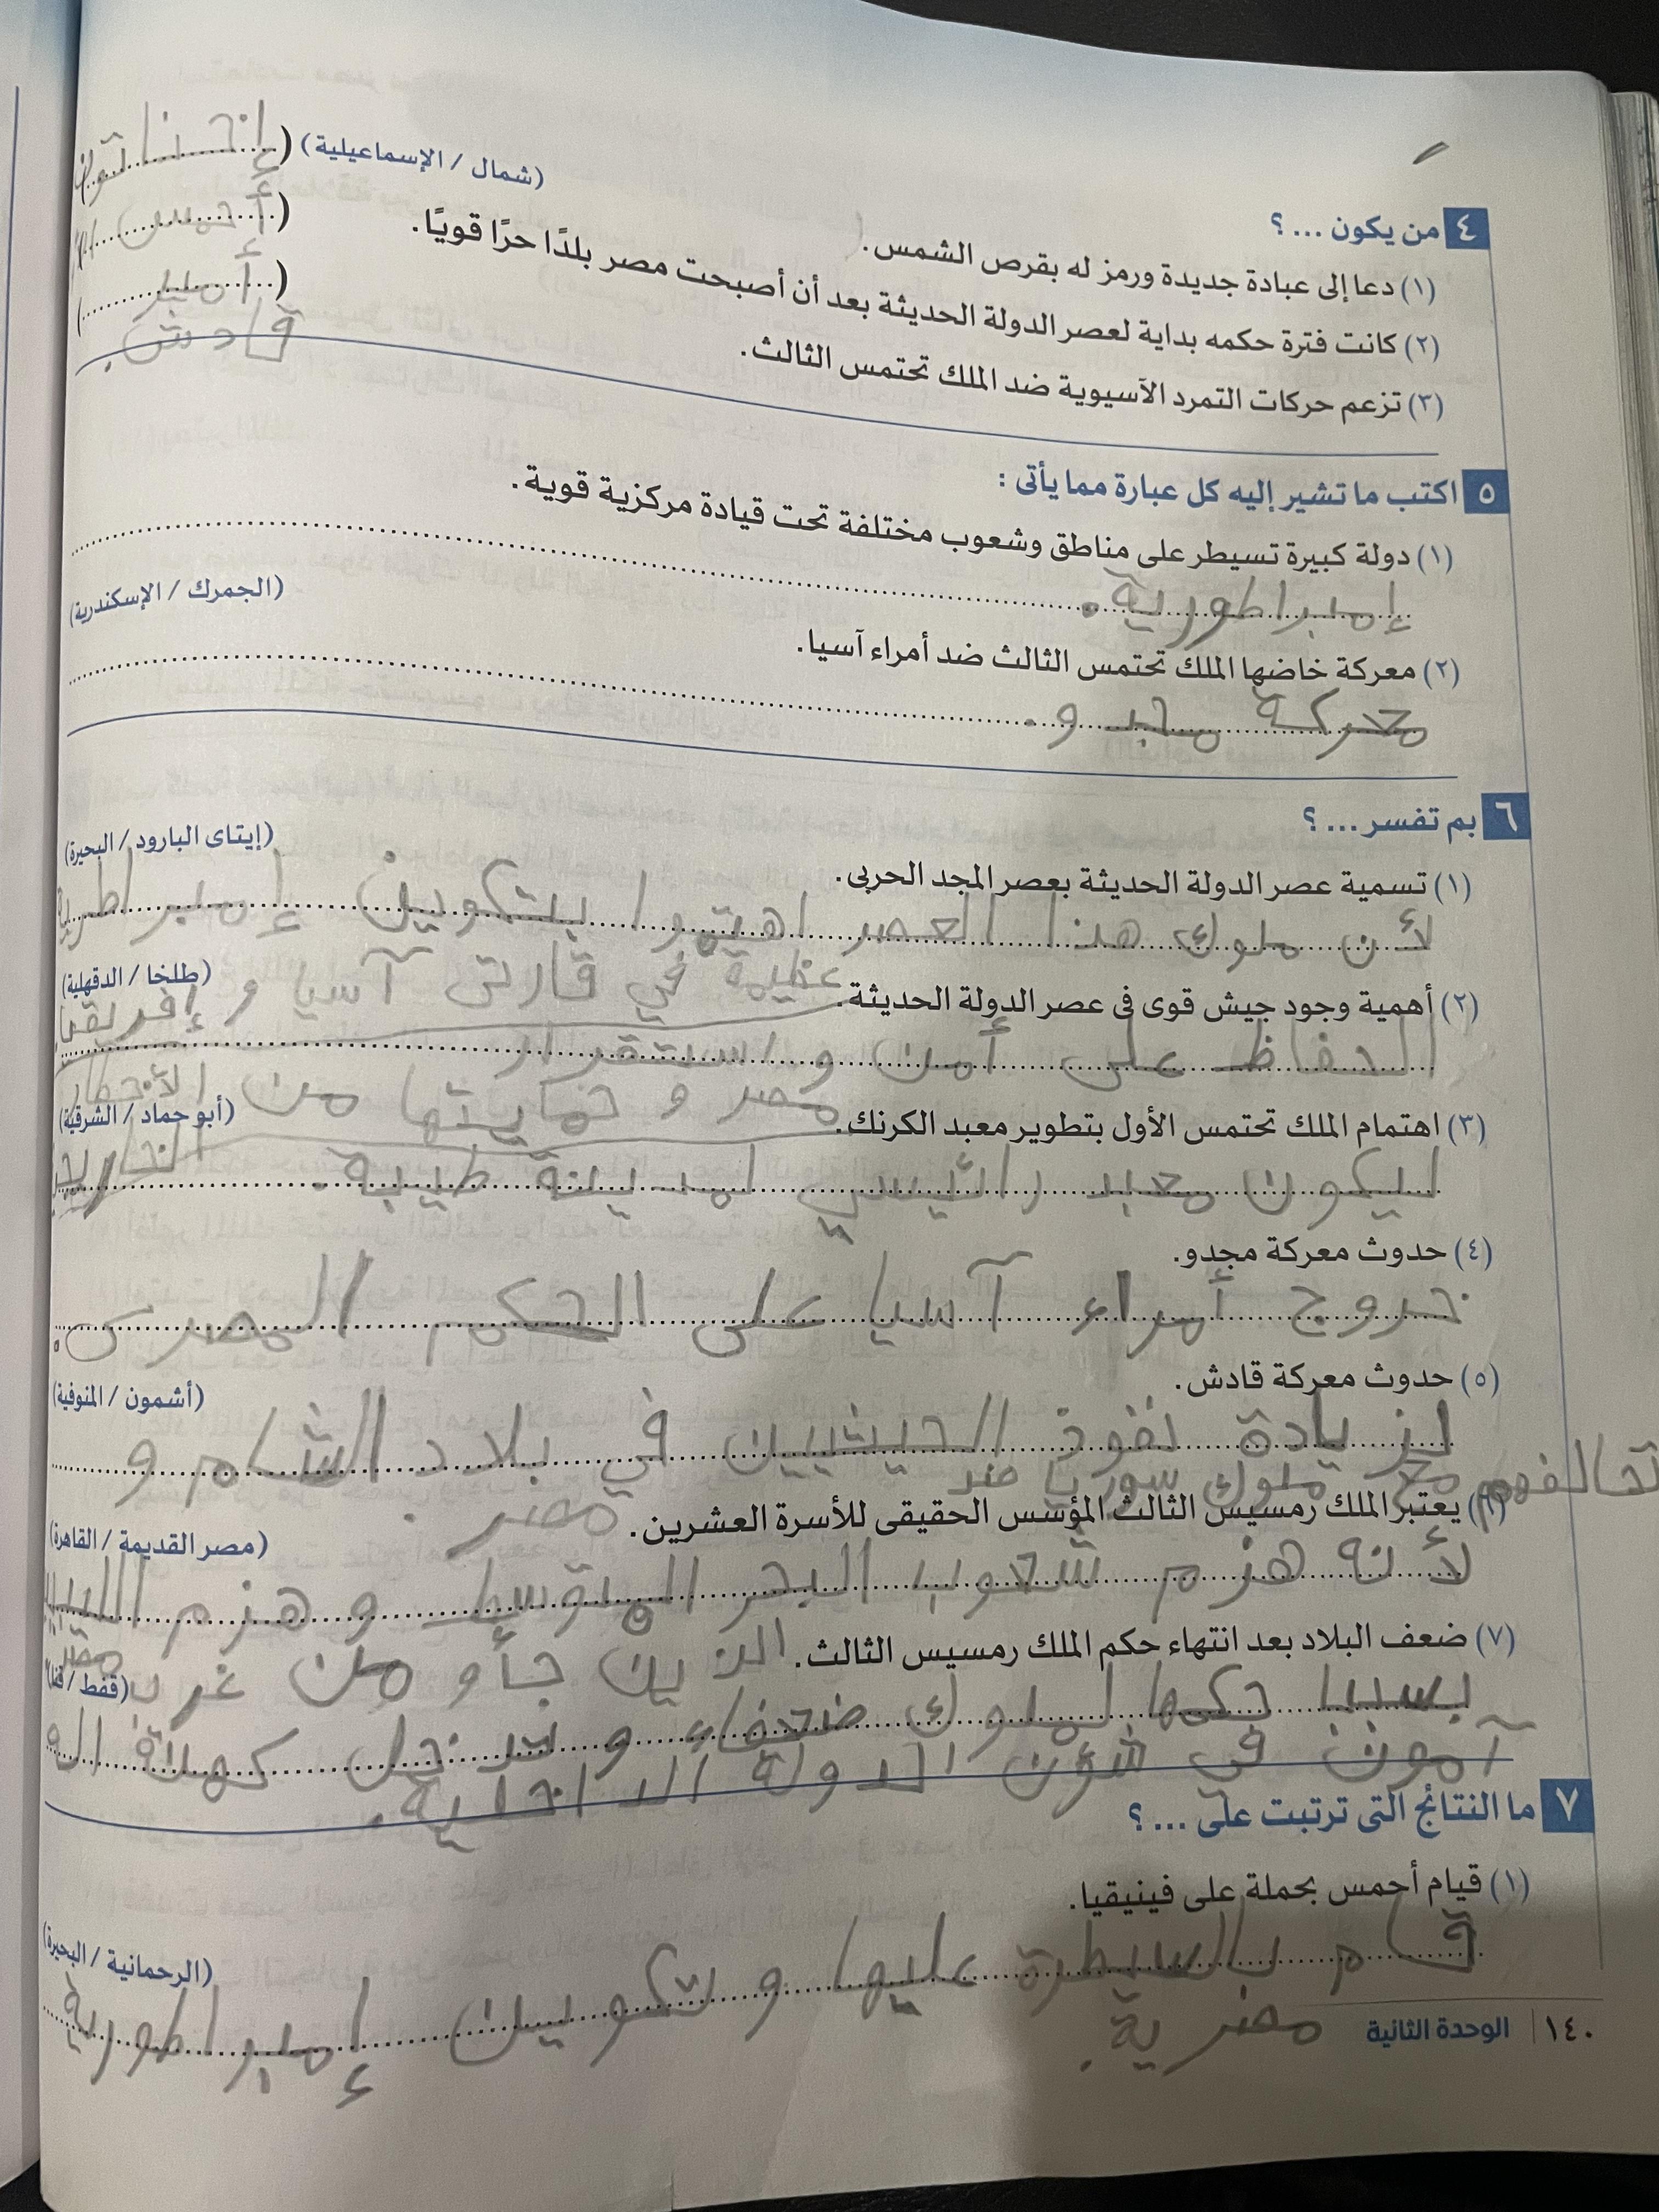 ٤ من يكون ... ؟
(١) دعا إلى عبادة جديدة ورمز له بقرص الشمس. (شمال / الإسماعيلية) (إخناتون
(٢) كانت فترة حكمه بداية لعصر الدولة الحديثة بعد أن أصبحت مصر بلدًا حرًا قويًا. (أحمس
(٣) تزعم حركات التمرد الآسيوية ضد الملك تحتمس الثالث. (أمير
قادش.
٥ اكتب ما تشير إليه كل عبارة مما يأتى :
(١) دولة كبيرة تسيطر على مناطق وشعوب مختلفة تحت قيادة مركزية قوية.
إمبراطورية.
(الجمرك / الإسكندرية)
(٢) معركة خاضها الملك تحتمس الثالث ضد أمراء آسيا.
معركة مجدو.
٦ بم تفسر... ؟
(١) تسمية عصر الدولة الحديثة بعصر المجد الحربى. (إيتاى البارود / البحيرة)
لأن ملوك هذا العصر اهتموا بتكوين إمبراطورية
عظيمة في قارتى آسيا و إفريقيا
(٢) أهمية وجود جيش قوى فى عصر الدولة الحديثة. (طلخا / الدقهلية)
الحفاظ على أمن و استقرار
مصر و حمايتها من الأخطار
(٣) اهتمام الملك تحتمس الأول بتطوير معبد الكرنك. (أبو حماد / الشرقية)
ليكون معبد رائيسي لمدينة طيبة.
(٤) حدوث معركة مجدو.
خروج أمراء آسيا على الحكم المصرى.
(٥) حدوث معركة قادش. (أشمون / المنوفية)
لزيادة نفوذ الحيثيين في بلاد الشام و
تحالفهم مع ملوك سوريا ضد
مصر.
(٦) يعتبر الملك رمسيس الثالث المؤسس الحقيقى للأسرة العشرين. (مصر القديمة / القاهرة)
لأنه هزم شعوب البحر المتوسط و هزم
الذين جأو من غرب مصر
(٧) ضعف البلاد بعد انتهاء حكم الملك رمسيس الثالث. (قفط / قنا)
بسبب حكمها لملوك ضعفاء و تدخل كهنة
آمون في شؤن الدولة الداخلية.
٧ ما النتائج التى ترتبت على ... ؟
(١) قيام أحمس بحملة على فينيقيا. (الرحمانية / البحيرة)
قام بالسيطرة عليها و تكوين إمبراطورية
مصرية.
١٤٠ | الوحدة الثانية